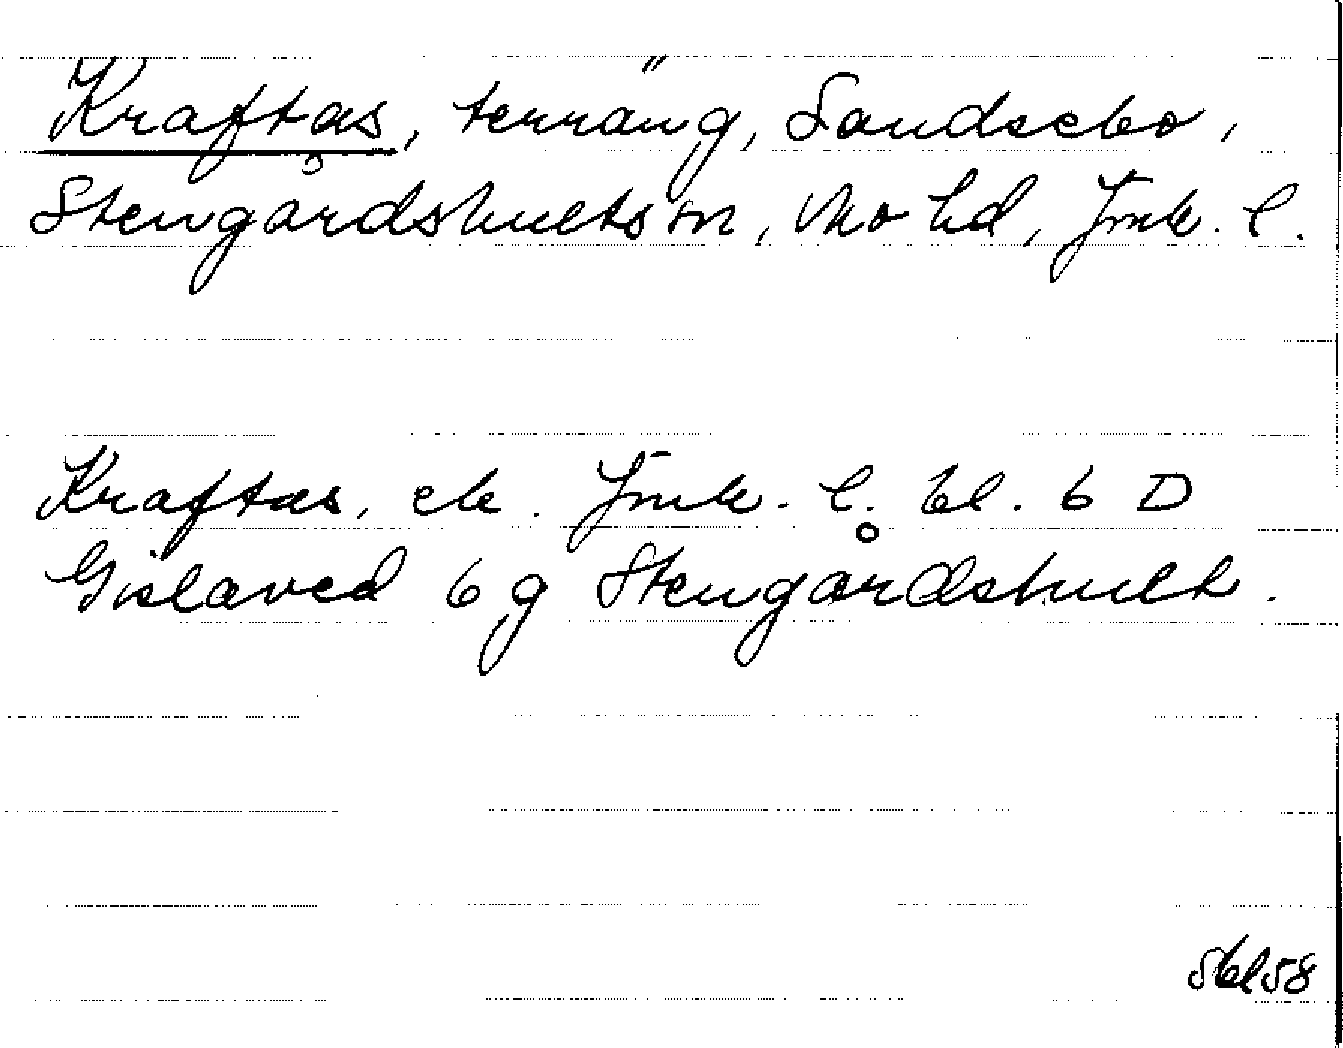 Kraftas, terräng, Sandsebo,
Stengårdshults sn, Mo hd, Jmk. l.
Kraftas, ek. Jmk. l. bl. 6 D
Gislaved 6 g Stengårdshult.
Sbl 58